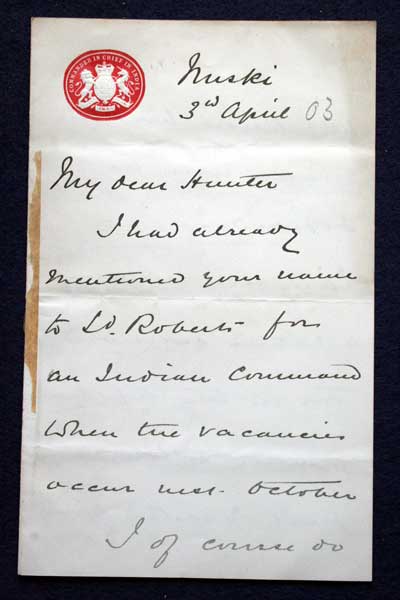 COMMANDER IN CHIEF IN INDIA
Nuski
3rd April 03
My dear Hunter
I had already
mentioned your name
to Ld. Roberts for
an Indian Command
when the vacancies
occur next October
I of course do